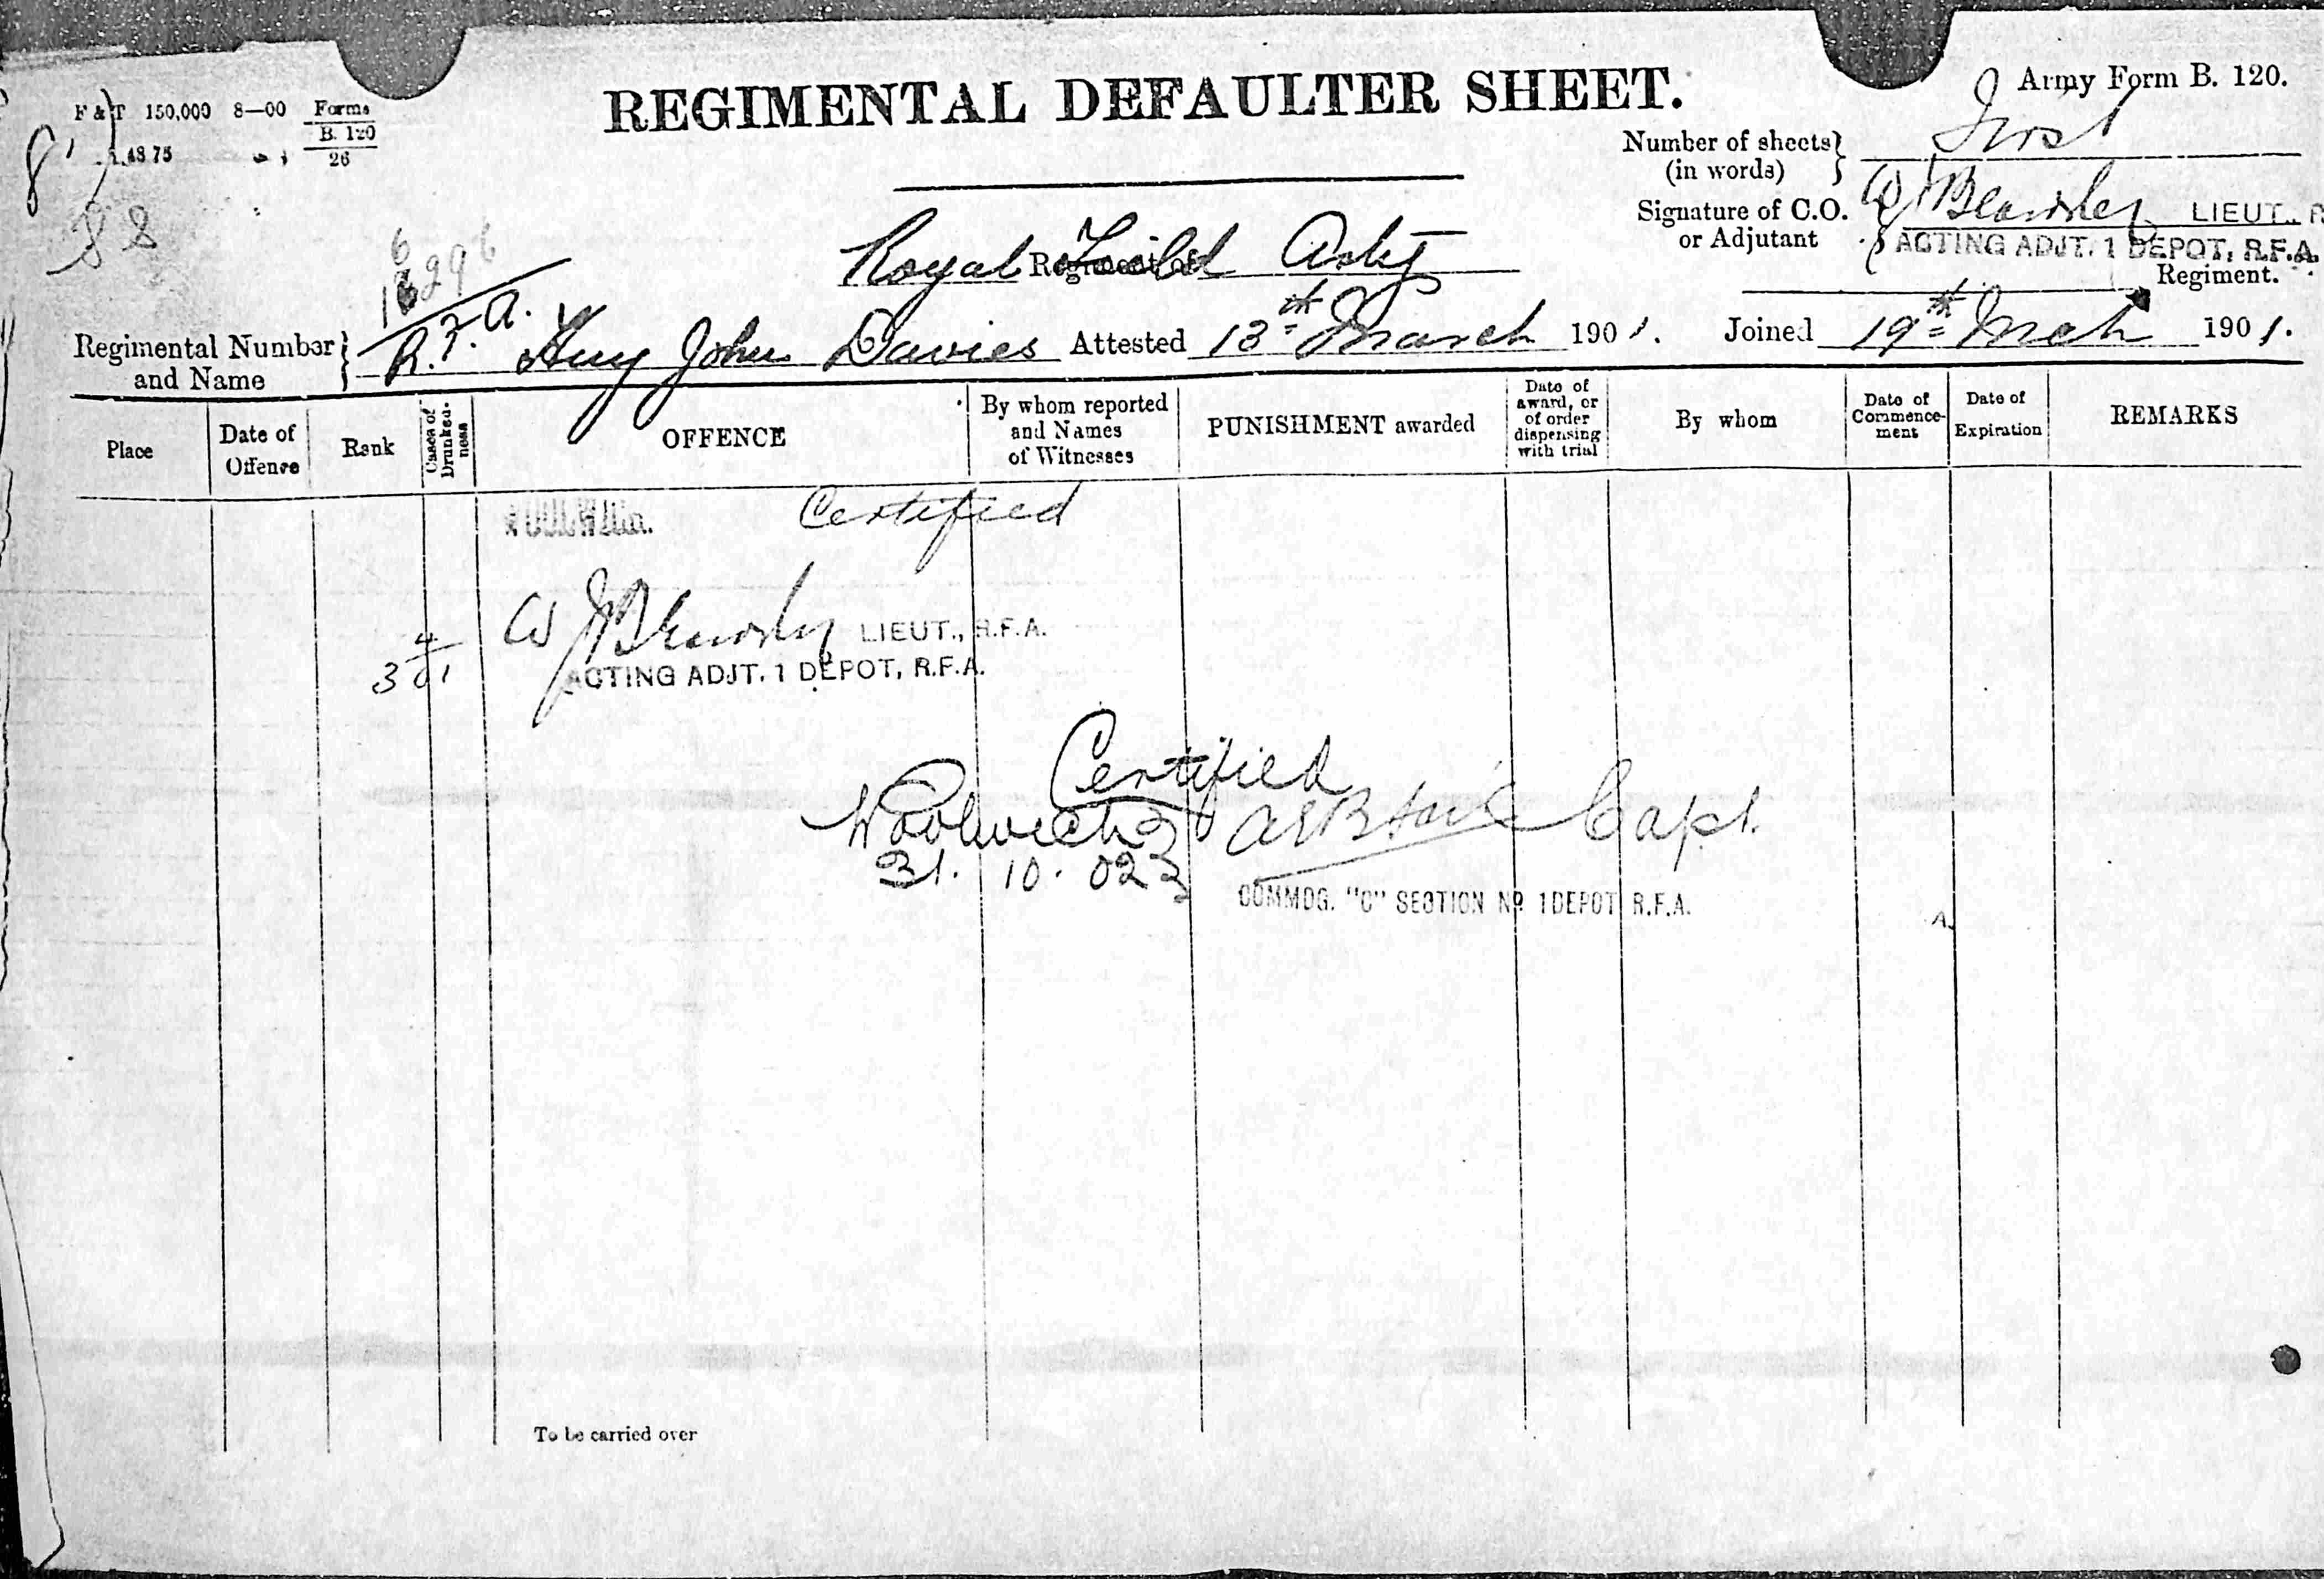 REGIMENTAL DEFAULTER SHEET.
Army Form B. 120.
F & T 150,000 8—00 Forms
B. 120
26
88
Number of sheets
(in words)
First
Signature of C.O.
or Adjutant
W LIEUT., R
ACTING ADJT. 1 DEPOT, R.F.A.
Regiment.
Royal Field Arty
Regimental Number
and Name
R.F.A. Hny John Davies Attested 13th March 1901. Joined 19th Mch 1901.
Place
Date of
Offence
Rank
Cases of
Drunken-
ness
OFFENCE
By whom reported
and Names
of Witnesses
PUNISHMENT awarded
Date of
award, or
of order
dispensing
with trial
By whom
Date of
Commence-
ment
Date of
Expiration
REMARKS
WOOLWICH. Certified
W LIEUT., R.F.A.
3 4/01 ACTING ADJT. 1 DEPOT, R.F.A.
Certified
Woolwich Capt.
31. 10. 02
COMMDG. "C" SECTION No 1 DEPOT R.F.A.
To be carried over